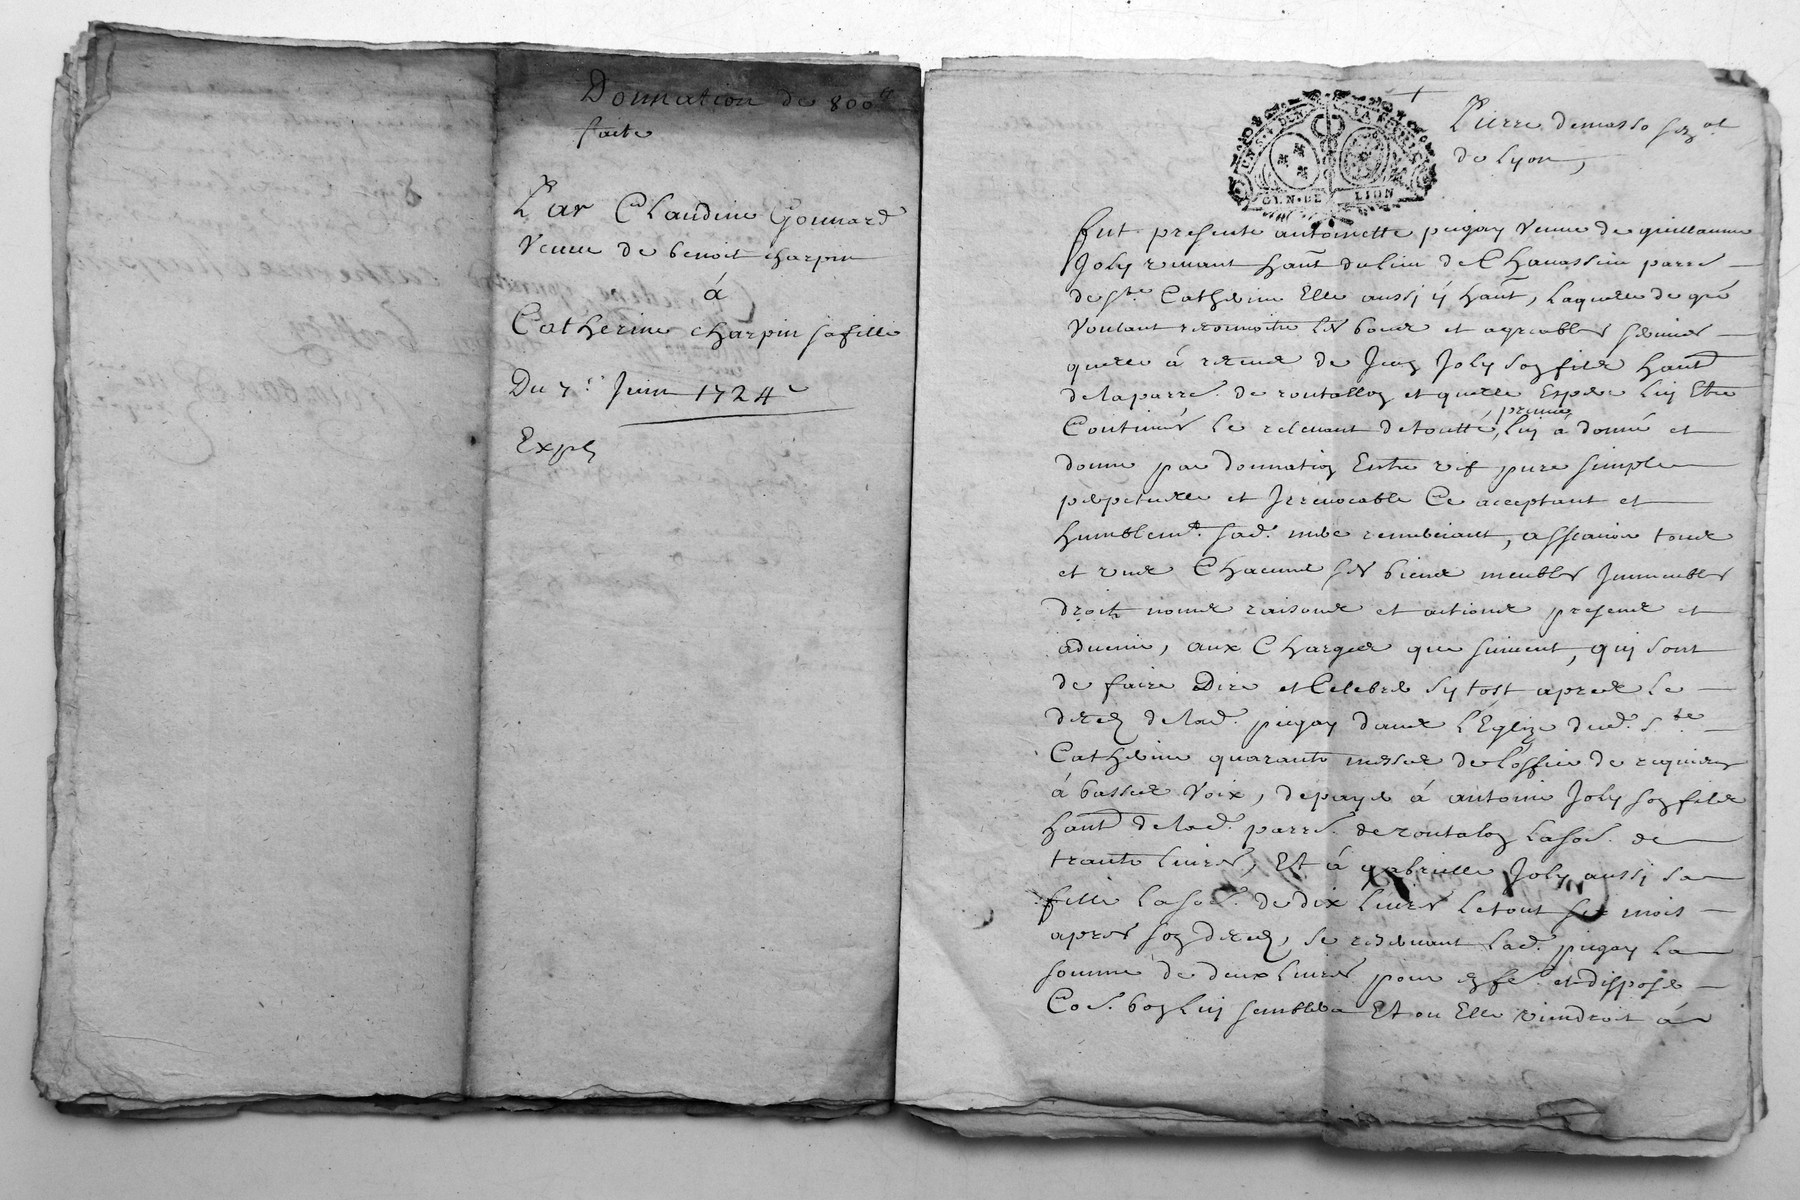 Donnation de 800ᵗᵗ
faite
Par Claudine Gonnard
Veuve de benoit charpin
á
Catherine charpin sa fille
Du 7ᵉ Juin 1724
Expe
GEN·DE LION
Pierre demasso seg.al
de Lyon,
fut presente antoinette pugay veuve de guillaume
Joly vivant hant du lieu de Chauassin parre
de ste. Catherine Elle aussi ÿ hant, Laquelle de gré
voulant reconnoitre les bons et agreables services
quelle á receue de Jean Joly son fils hant
de la parre. de rontallon et quelle Espere luy Etre
Continués Le relevant de toutte preuve, luy á donné et
donne par donnation Entre vif pure simple
perpetuelle et Irrevocable Ce acceptant et
humblemt. sad. mere remerciant, assavoir tous
et uns Chacuns ses biens meubles Immeubles
droits noms raisons et actions presens et
advenir, aux Charges que suivent, qui sont
de faire Dire et Celebrer sytost apres le
deces de lad. pugay dans L'Eglize dud. ste.
Catherine quarante messes de Loffice de requiem
á basses voix, de payer á antoine Joly son fils
hant de lad. parre. de rontalon La som. de
trante livres, Et á gabrielle Joly aussi sa
fille La som. de dix livres Le tout six mois
apres son deces, se reservant Lad. pugay La
somme de deux livres pour en fe. et disposer
Co. bon luy semblera Et ou Elle viendroit á